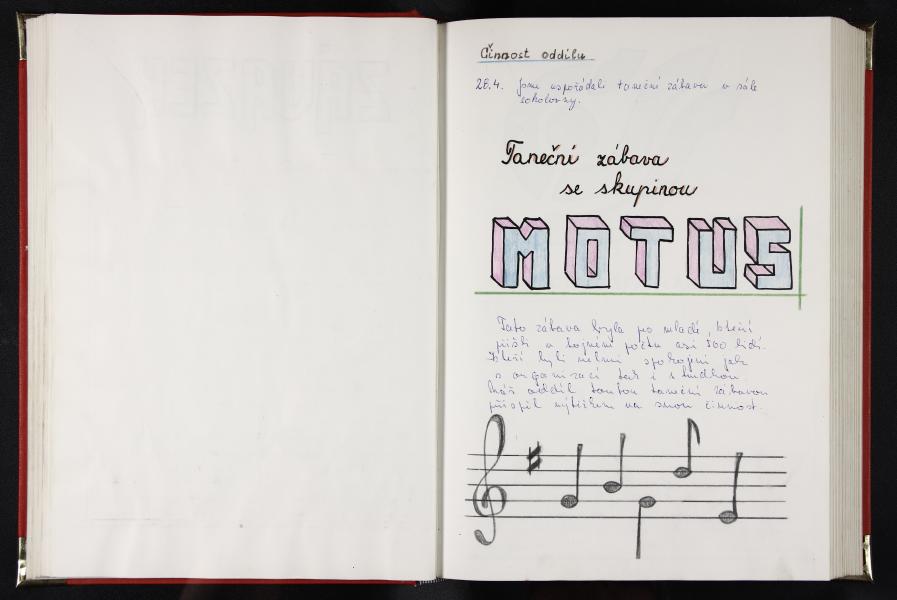 Činnost oddílu
28.4. Jsme uspořádali taneční zábavu v sále
sokolovny.
Taneční zábava
se skupinou
MOTUS
Tato zábava byla po mladé, kteří
přišli v hojném počtu asi 500 lidí.
Kteří byli velmi spokojni jak
s organizací tak i s hudbou.
Náš oddíl touto taneční zábavou
přispěl výtěžkem na svou činnost.